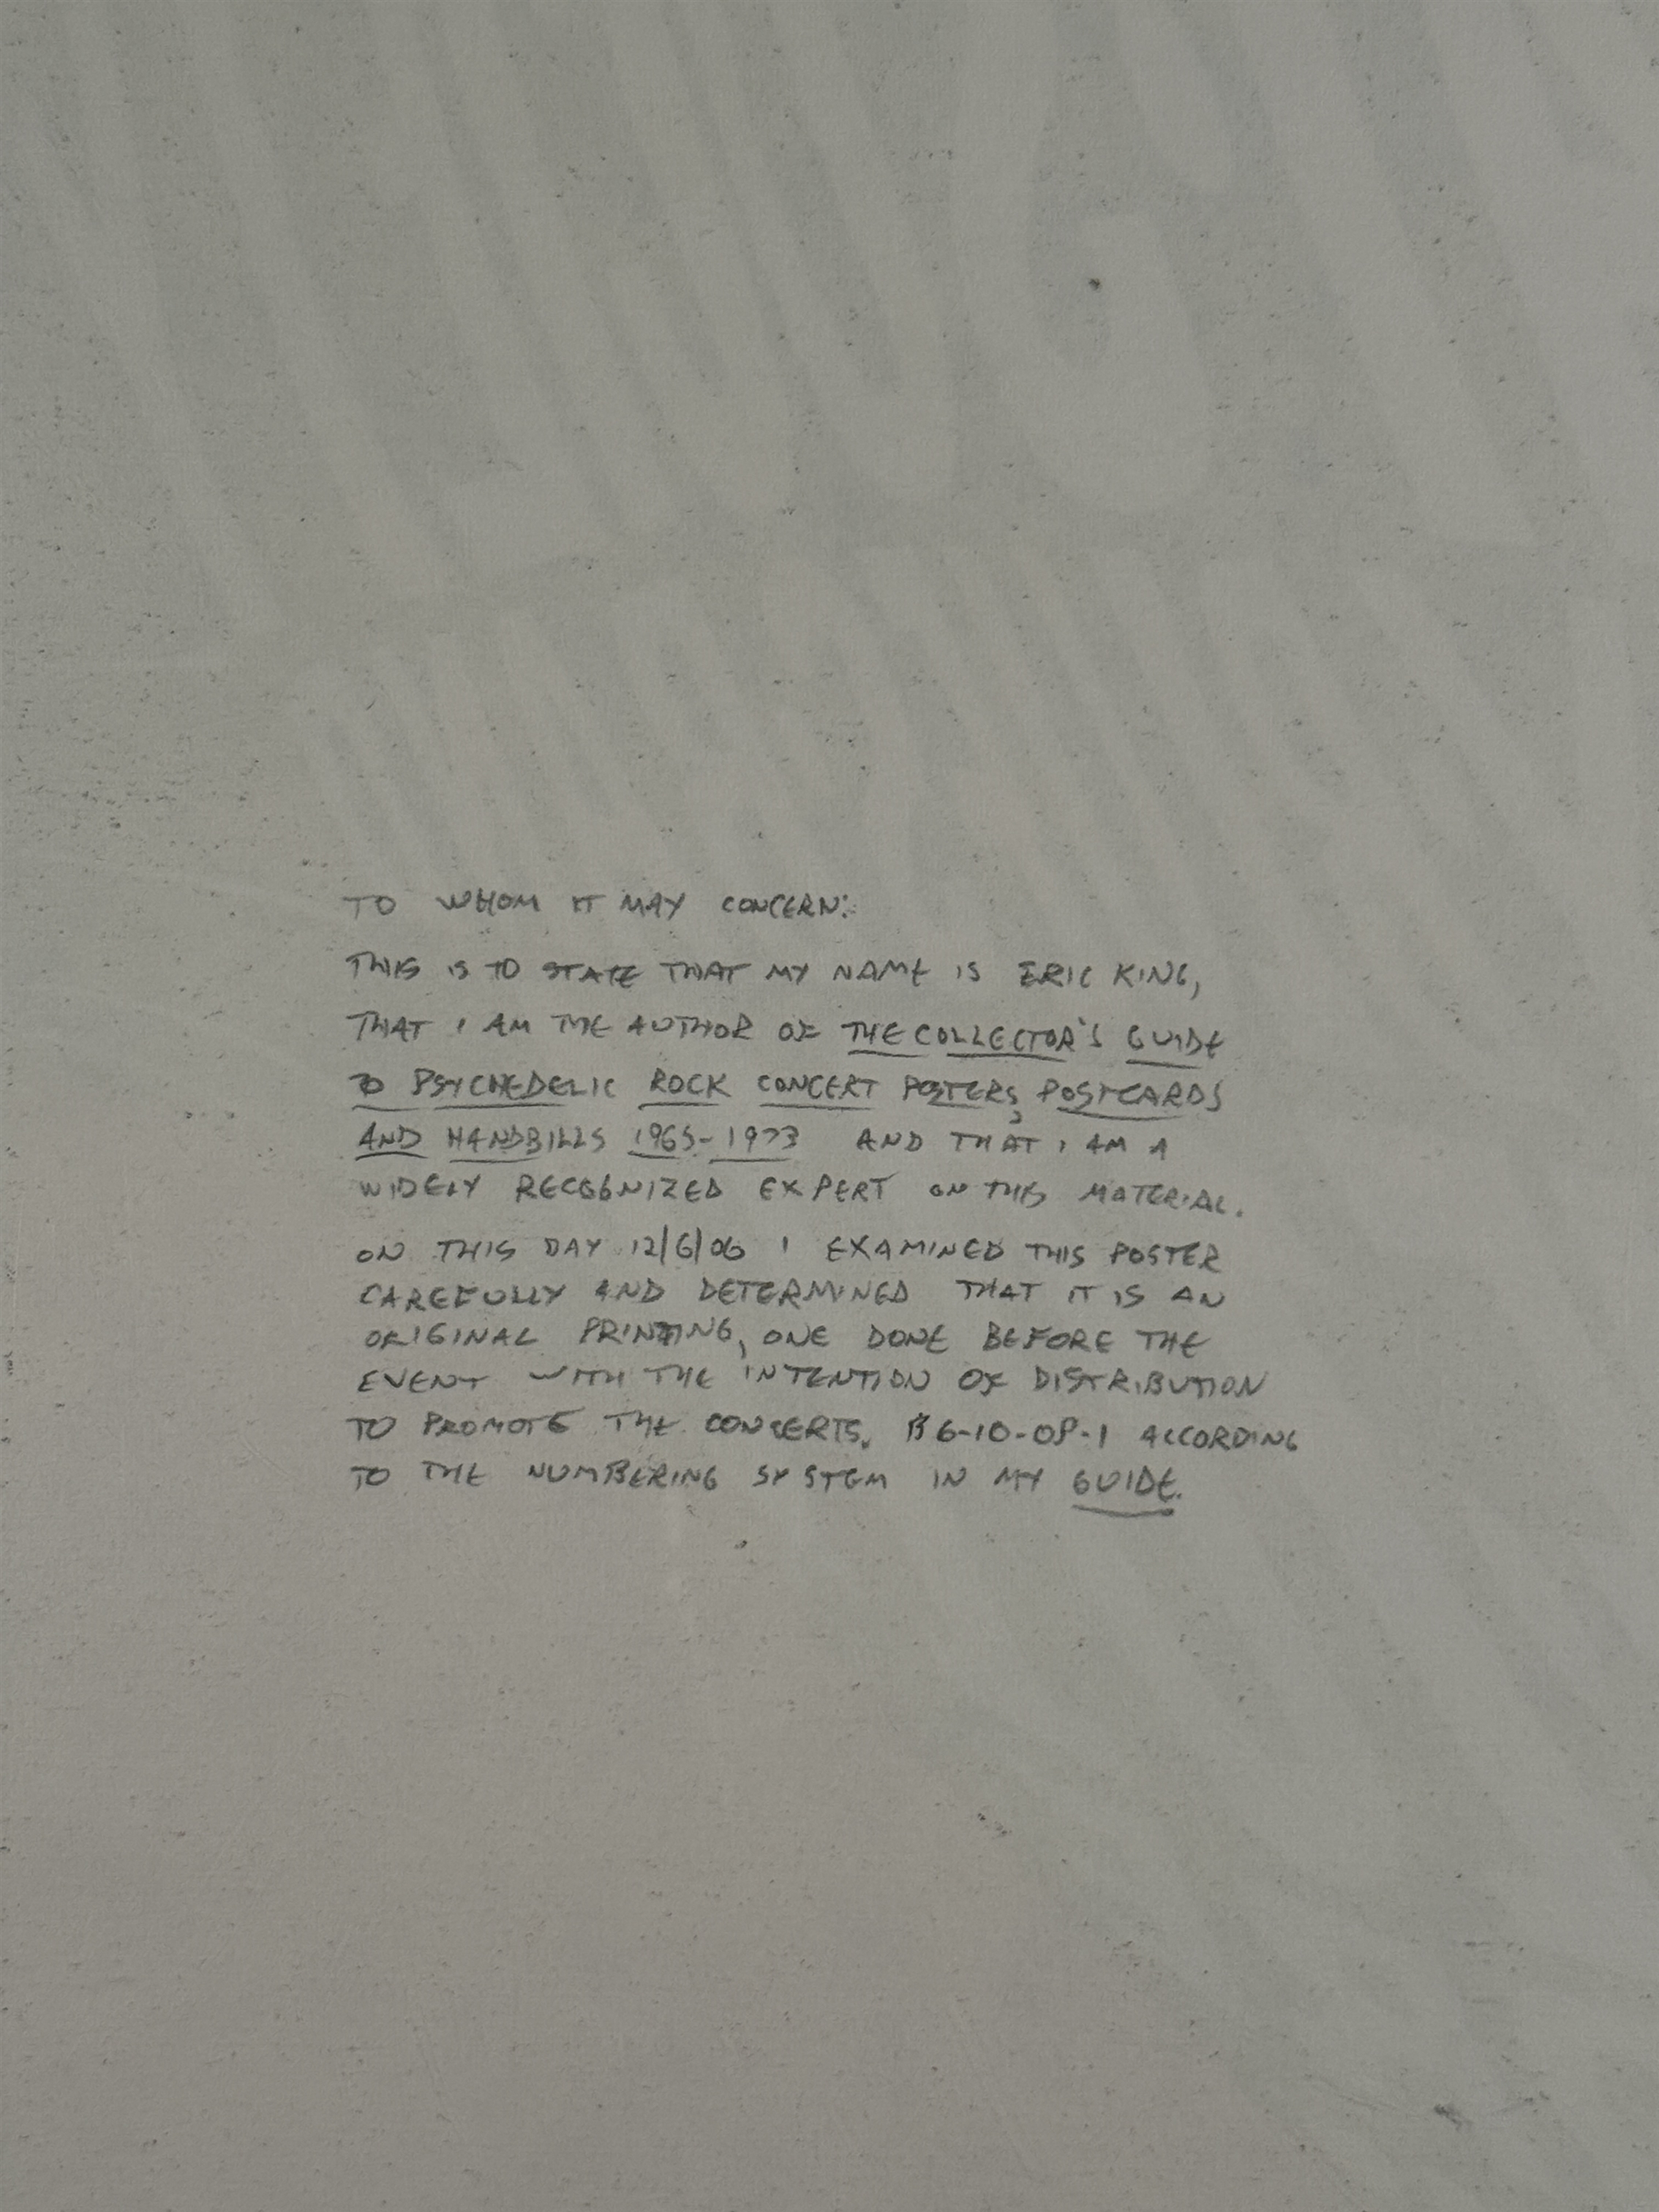 TO WHOM IT MAY CONCERN:
THIS IS TO STATE THAT MY NAME IS ERIC KING,
THAT I AM THE AUTHOR OF THE COLLECTOR'S GUIDE
TO PSYCHEDELIC ROCK CONCERT POSTERS, POSTCARDS
AND HANDBILLS 1965-1973 AND THAT I AM A
WIDELY RECOGNIZED EXPERT ON THIS MATERIAL.
ON THIS DAY 12/6/06 I EXAMINED THIS POSTER
CAREFULLY AND DETERMINED THAT IT IS AN
ORIGINAL PRINTING, ONE DONE BEFORE THE
EVENT WITH THE INTENTION OF DISTRIBUTION
TO PROMOTE THE CONCERTS. BG-10-OP-1 ACCORDING
TO THE NUMBERING SYSTEM IN MY GUIDE.